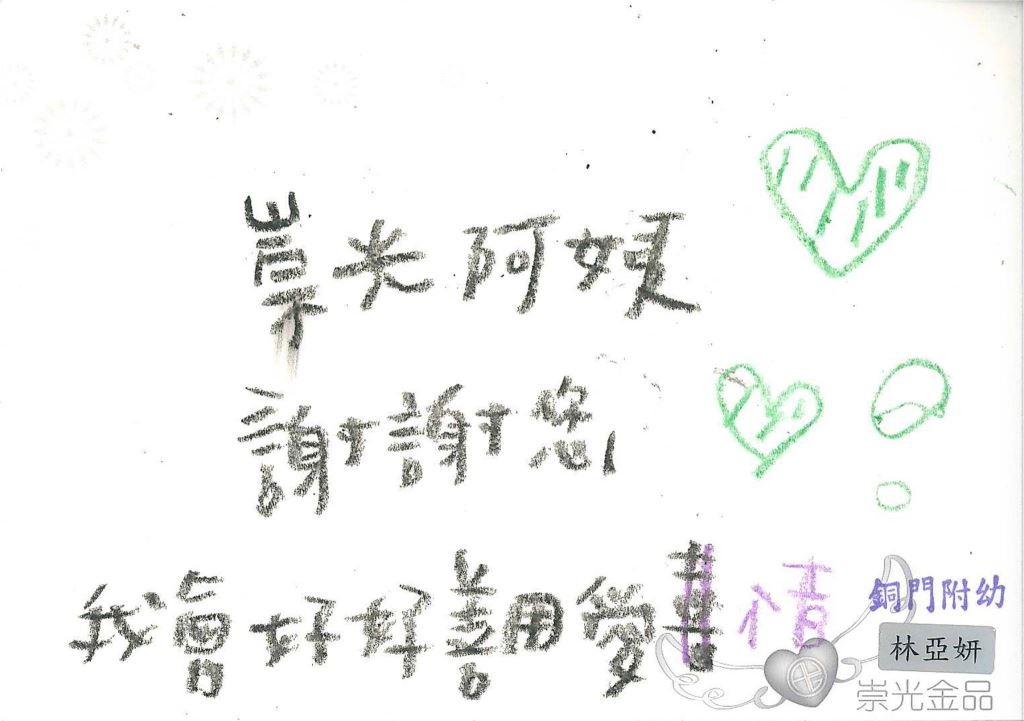 崇光阿姨
謝謝您
我會好好善用愛書情
銅門附幼
林亞妍
崇光金品